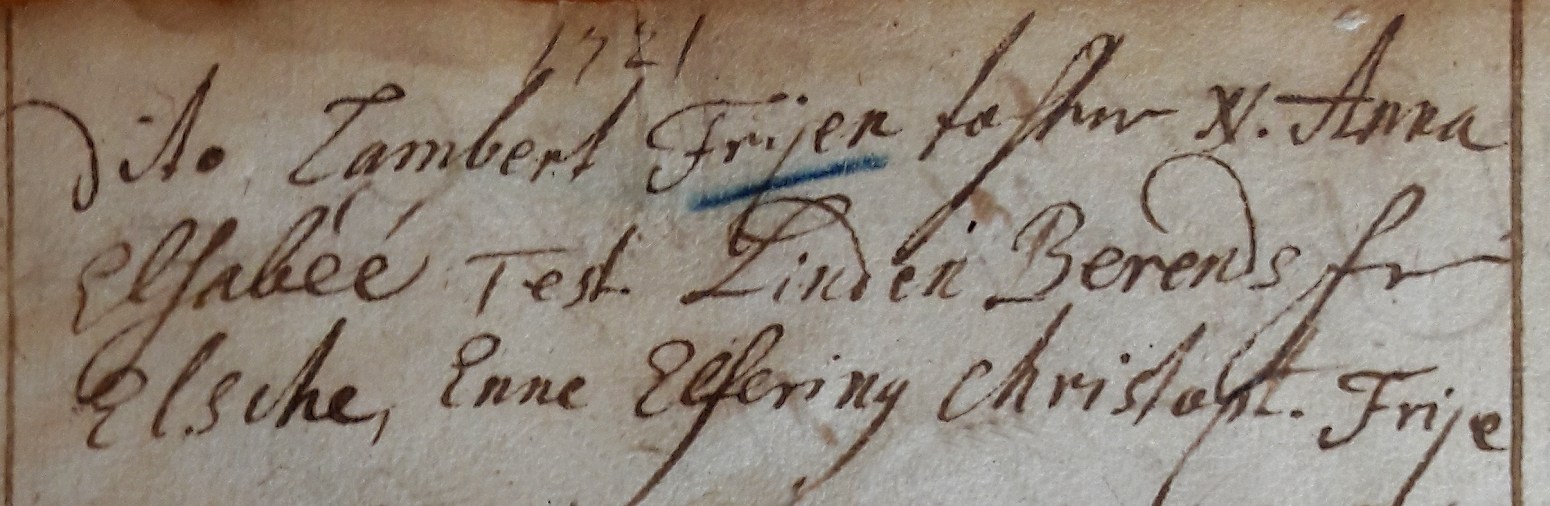 1721
Dito Lambert Frijen tochter N. Anna
Elsabeé Test. Linden Berends fr
Elsche, Enne Elfering Christoph. Frije